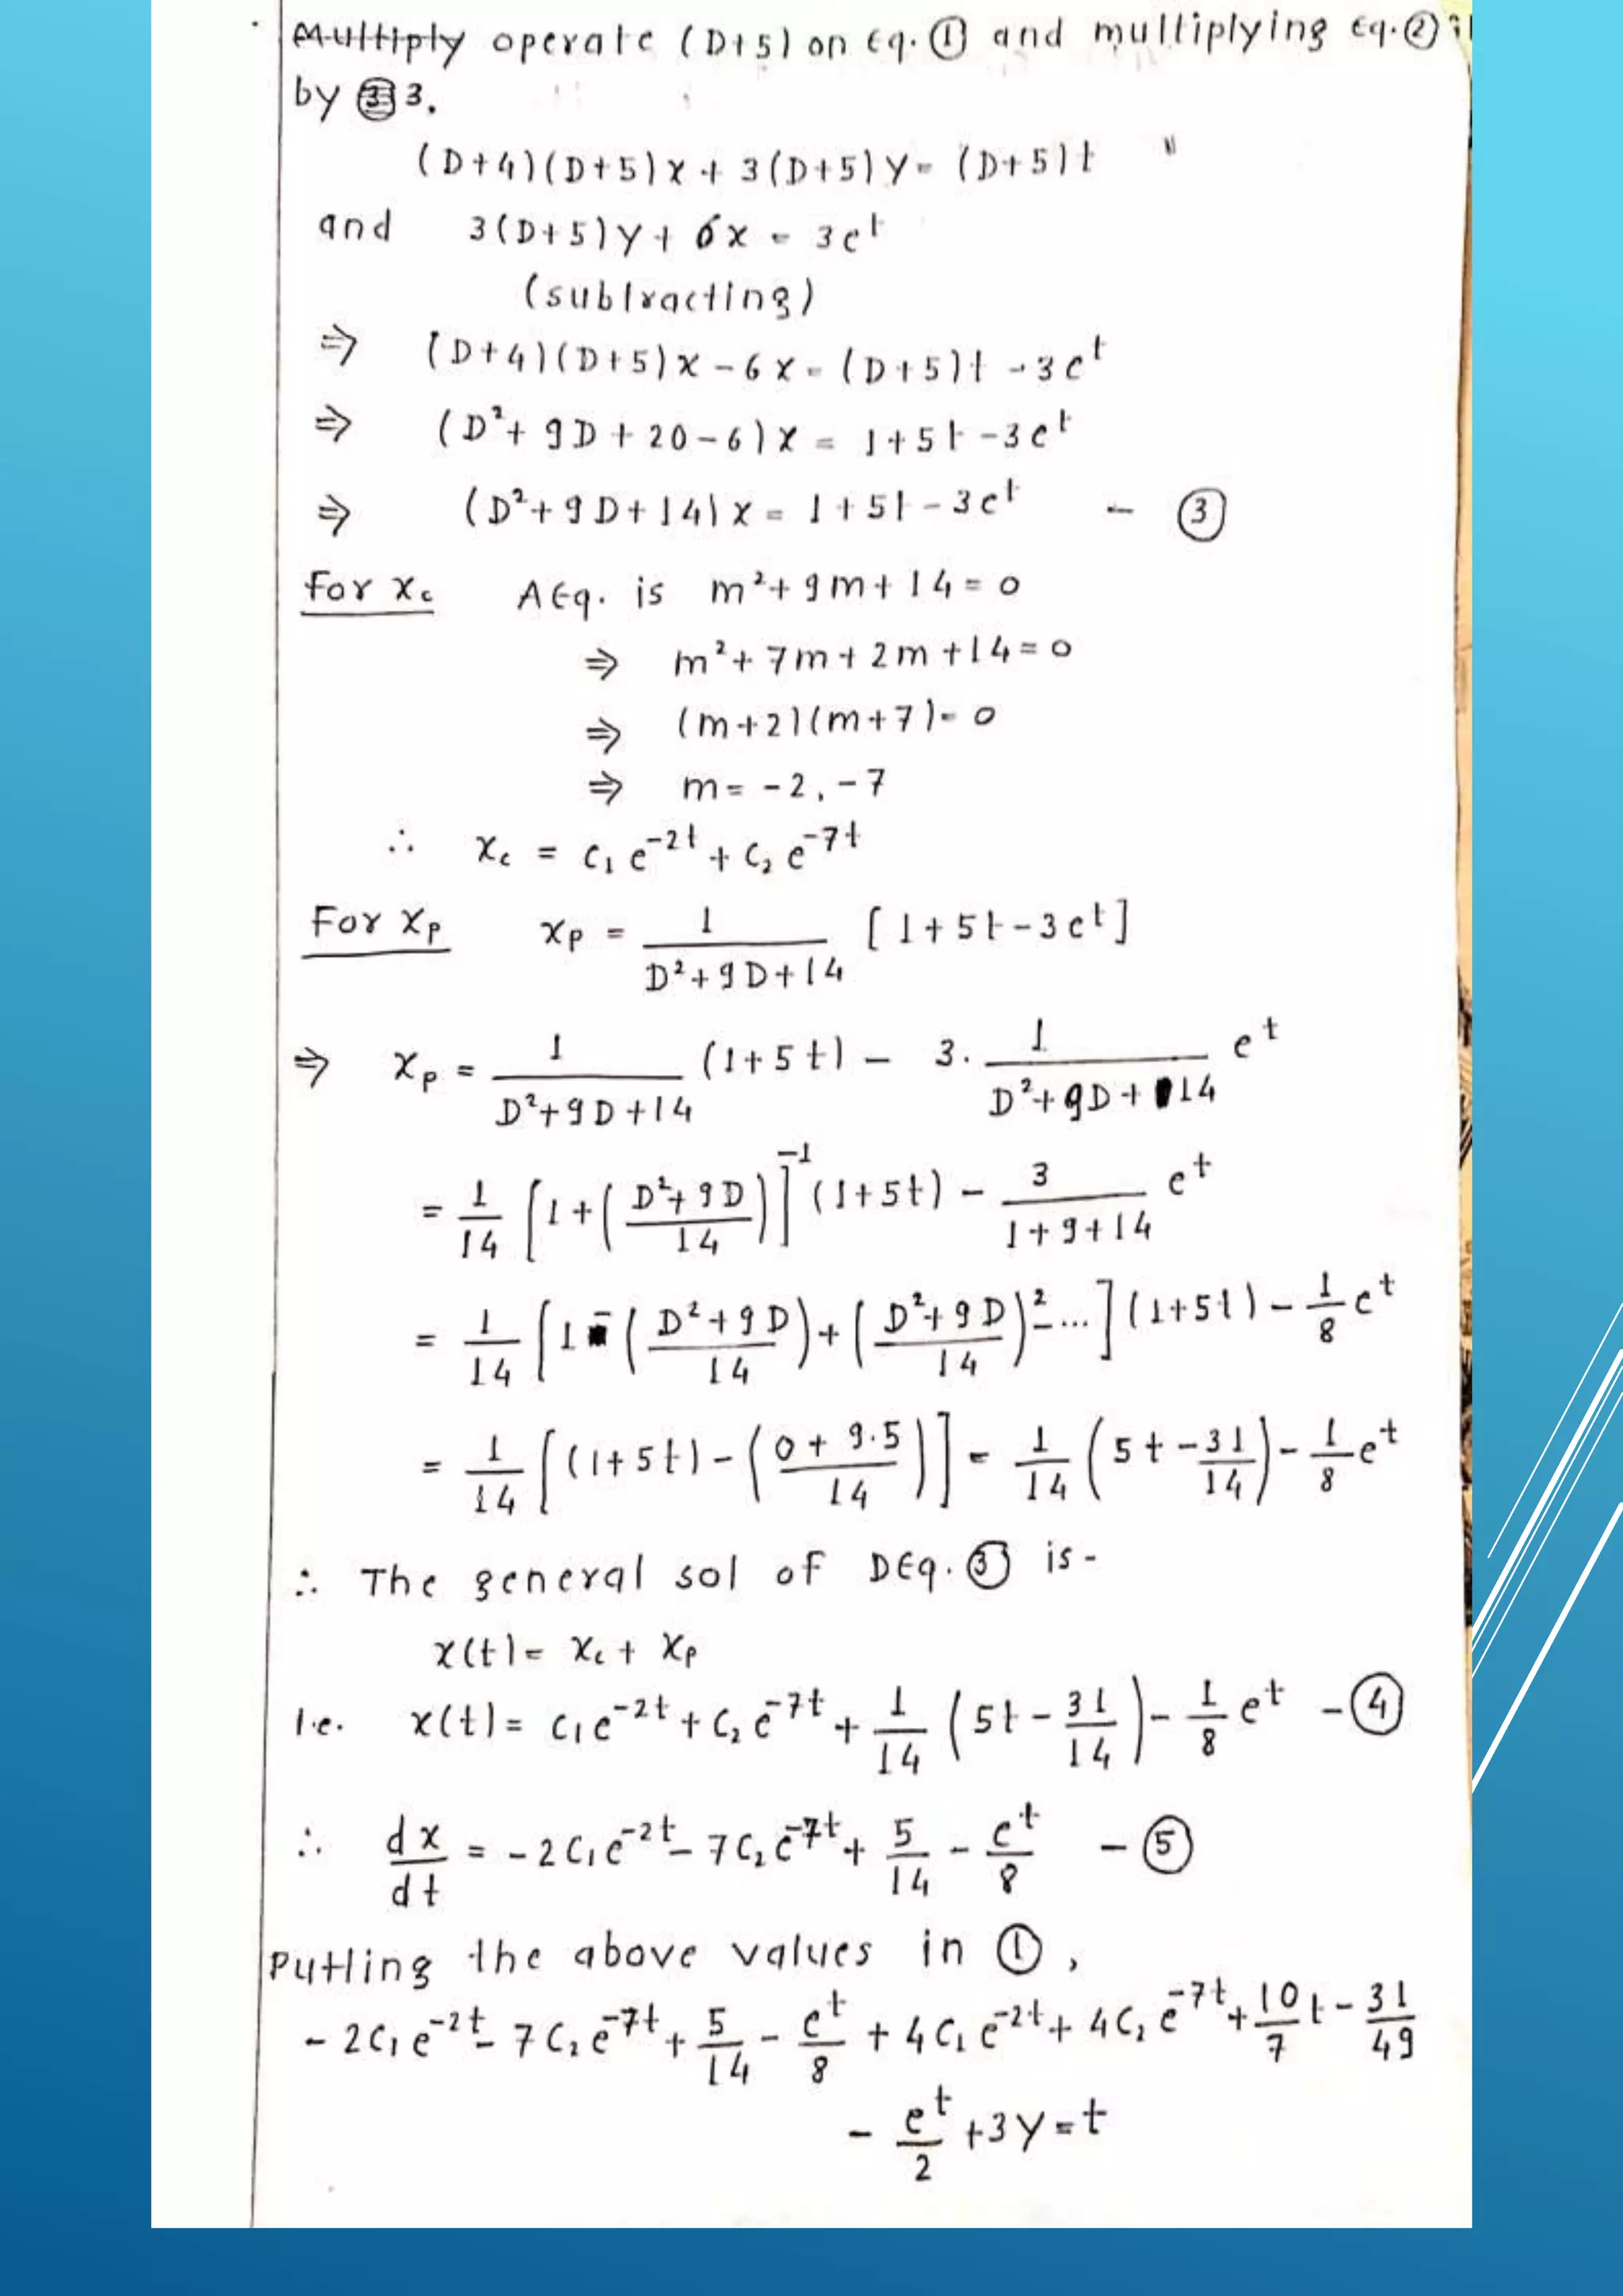 Multiply operate (D+5) on Eq. ① and multiplying Eq. ②
by 3.
(D+4)(D+5)x + 3(D+5)y = (D+5)t
and 3(D+5)y + 6x = 3e^t
(subtracting)
⇒ (D+4)(D+5)x - 6x = (D+5)t - 3e^t
⇒ (D²+ 9D + 20 - 6)x = 1+5t - 3e^t
⇒ (D²+ 9D + 14)x = 1+5t - 3e^t - ③
For x_c AEq. is m²+ 9m + 14 = 0
⇒ m²+ 7m + 2m + 14 = 0
⇒ (m+2)(m+7) = 0
⇒ m = -2, -7
∴ x_c = c₁e^-2t + c₂e^-7t
For x_p x_p = 1/(D²+9D+14) [1+5t-3e^t]
⇒ x_p = 1/(D²+9D+14) (1+5t) - 3. 1/(D²+9D+14) e^t
= 1/14 [1+((D²+9D)/14)]^-1 (1+5t) - 3/(1+9+14) e^t
= 1/14 [1-((D²+9D)/14)+((D²+9D)/14)²-...](1+5t) - 1/8 e^t
= 1/14 [(1+5t)-((0+9.5)/14)] = 1/14 (5t-31/14) - 1/8 e^t
∴ The general sol of DEq. ③ is -
x(t) = x_c + x_p
i.e. x(t) = c₁e^-2t + c₂e^-7t + 1/14 (5t - 31/14) - 1/8 e^t - ④
∴ dx/dt = -2c₁e^-2t - 7c₂e^-7t + 5/14 - e^t/8 - ⑤
Putting the above values in ①,
- 2c₁e^-2t - 7c₂e^-7t + 5/14 - e^t/8 + 4c₁e^-2t + 4c₂e^-7t + 10/7 t - 31/49
- e^t/2 + 3y = t